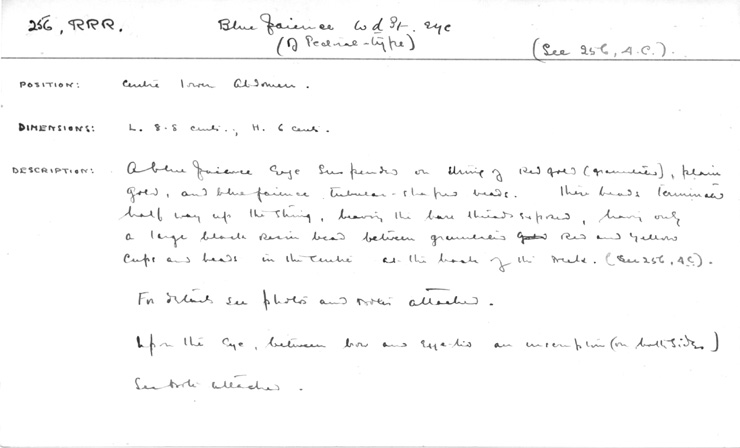 256, RRR.
Blue faience Wdȝt. Eye
(Of Pectoral-type)
(See 256, A.C.).
POSITION: Centre lower Abdomen.
DIMENSIONS: L. 8.5 cents., H. 6 cents.
DESCRIPTION: A blue faience Eye suspended on string of red gold (granulated), plain
gold, and blue faience tubular-shaped beads. These beads terminate
half way up the string, leaving the bare thread exposed, having only
a large black resin bead between granulated red and yellow
cups and beads in the centre at the back of the neck. (See 256, A.C.).
For details see photos and notes attached.
Upon the Eye, between brow and Eye-lid an inscription (on both sides)
See note attached.